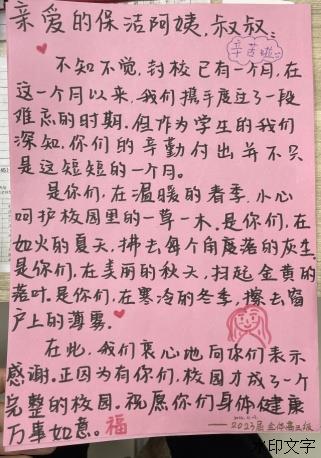 亲爱的保洁阿姨,叔叔:
辛苦啦
不知不觉,封校已有一个月,在
这一个月以来,我们携手度过了一段
难忘的时期.但作为学生的我们
深知,你们的辛勤付出并不只
是这短短的一个月。
是你们,在温暖的春季,小心
呵护校园里的一草一木.是你们,在
如火的夏天,拂去每个角度落的灰尘.
是你们,在美丽的秋天,扫起金黄的
落叶.是你们,在寒冷的冬季,擦去窗
户上的薄雾.
在此,我们衷心地向你们表示
感谢。正因为有你们,校园才成了一个
完整的校园.祝愿你们身体健康
万事如意。福
——2023届全体高三级
水印文字